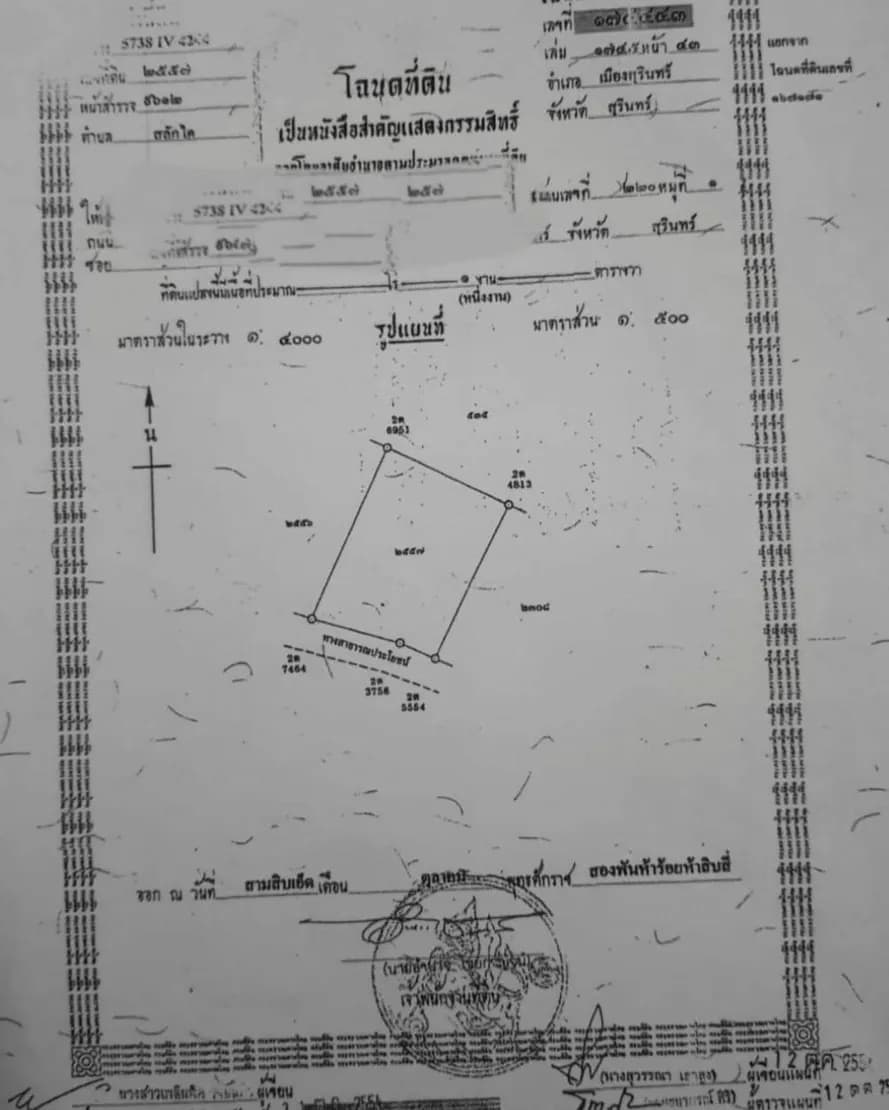 5738 IV
เลขที่
๒๕๕๗
เล่ม ๑๗๔ หน้า ๔๓
หน้าสำรวจ
อำเภอ เมืองสุรินทร์
ตำบล สลักได
จังหวัด สุรินทร์
แยกจาก
โฉนดที่ดินเลขที่
๑๖๗๑๘๑
โฉนดที่ดิน
เป็นหนังสือสำคัญแสดงกรรมสิทธิ์
๒๕๕๗ ๒๕๗
5738 IV
หมู่ที่ ๑
ถนน
จังหวัด สุรินทร์
ซอย
ที่ดินแปลงนี้มีเนื้อที่ประมาณ ไร่ ๑ งาน ตารางวา
(หนึ่งงาน)
มาตราส่วนในระวาง ๑: ๔๐๐๐
รูปแผนที่
มาตราส่วน ๑: ๕๐๐
น
๕๓๕
2ต
6951
2ต
4813
๒๕๕๖
๒๕๕๗
๒๓๐๘
ทางสาธารณประโยชน์
2ต
7464
2ต
3756
2ต
5554
ออก ณ วันที่ สามสิบเอ็ด เดือน ตุลาคม พุทธศักราช สองพันห้าร้อยห้าสิบสี่
เจ้าพนักงานที่ดิน
(นางสุวรรณา ผู้เขียนแผนที่ 12 ต.ค.
นางสาว ผู้เขียน
ผู้ตรวจแผนที่ 12 ต ค